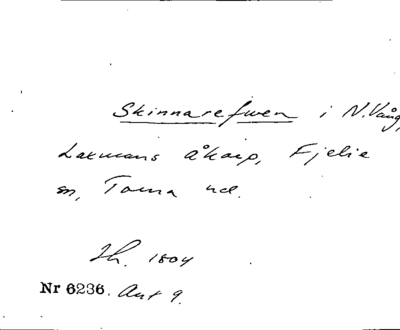 Skinnarefwen i N.Vång,
Laxmans Åkarp, Fjelie
sn, Torna hd.
Sh. 1804
Nr 6236. Akt 9.